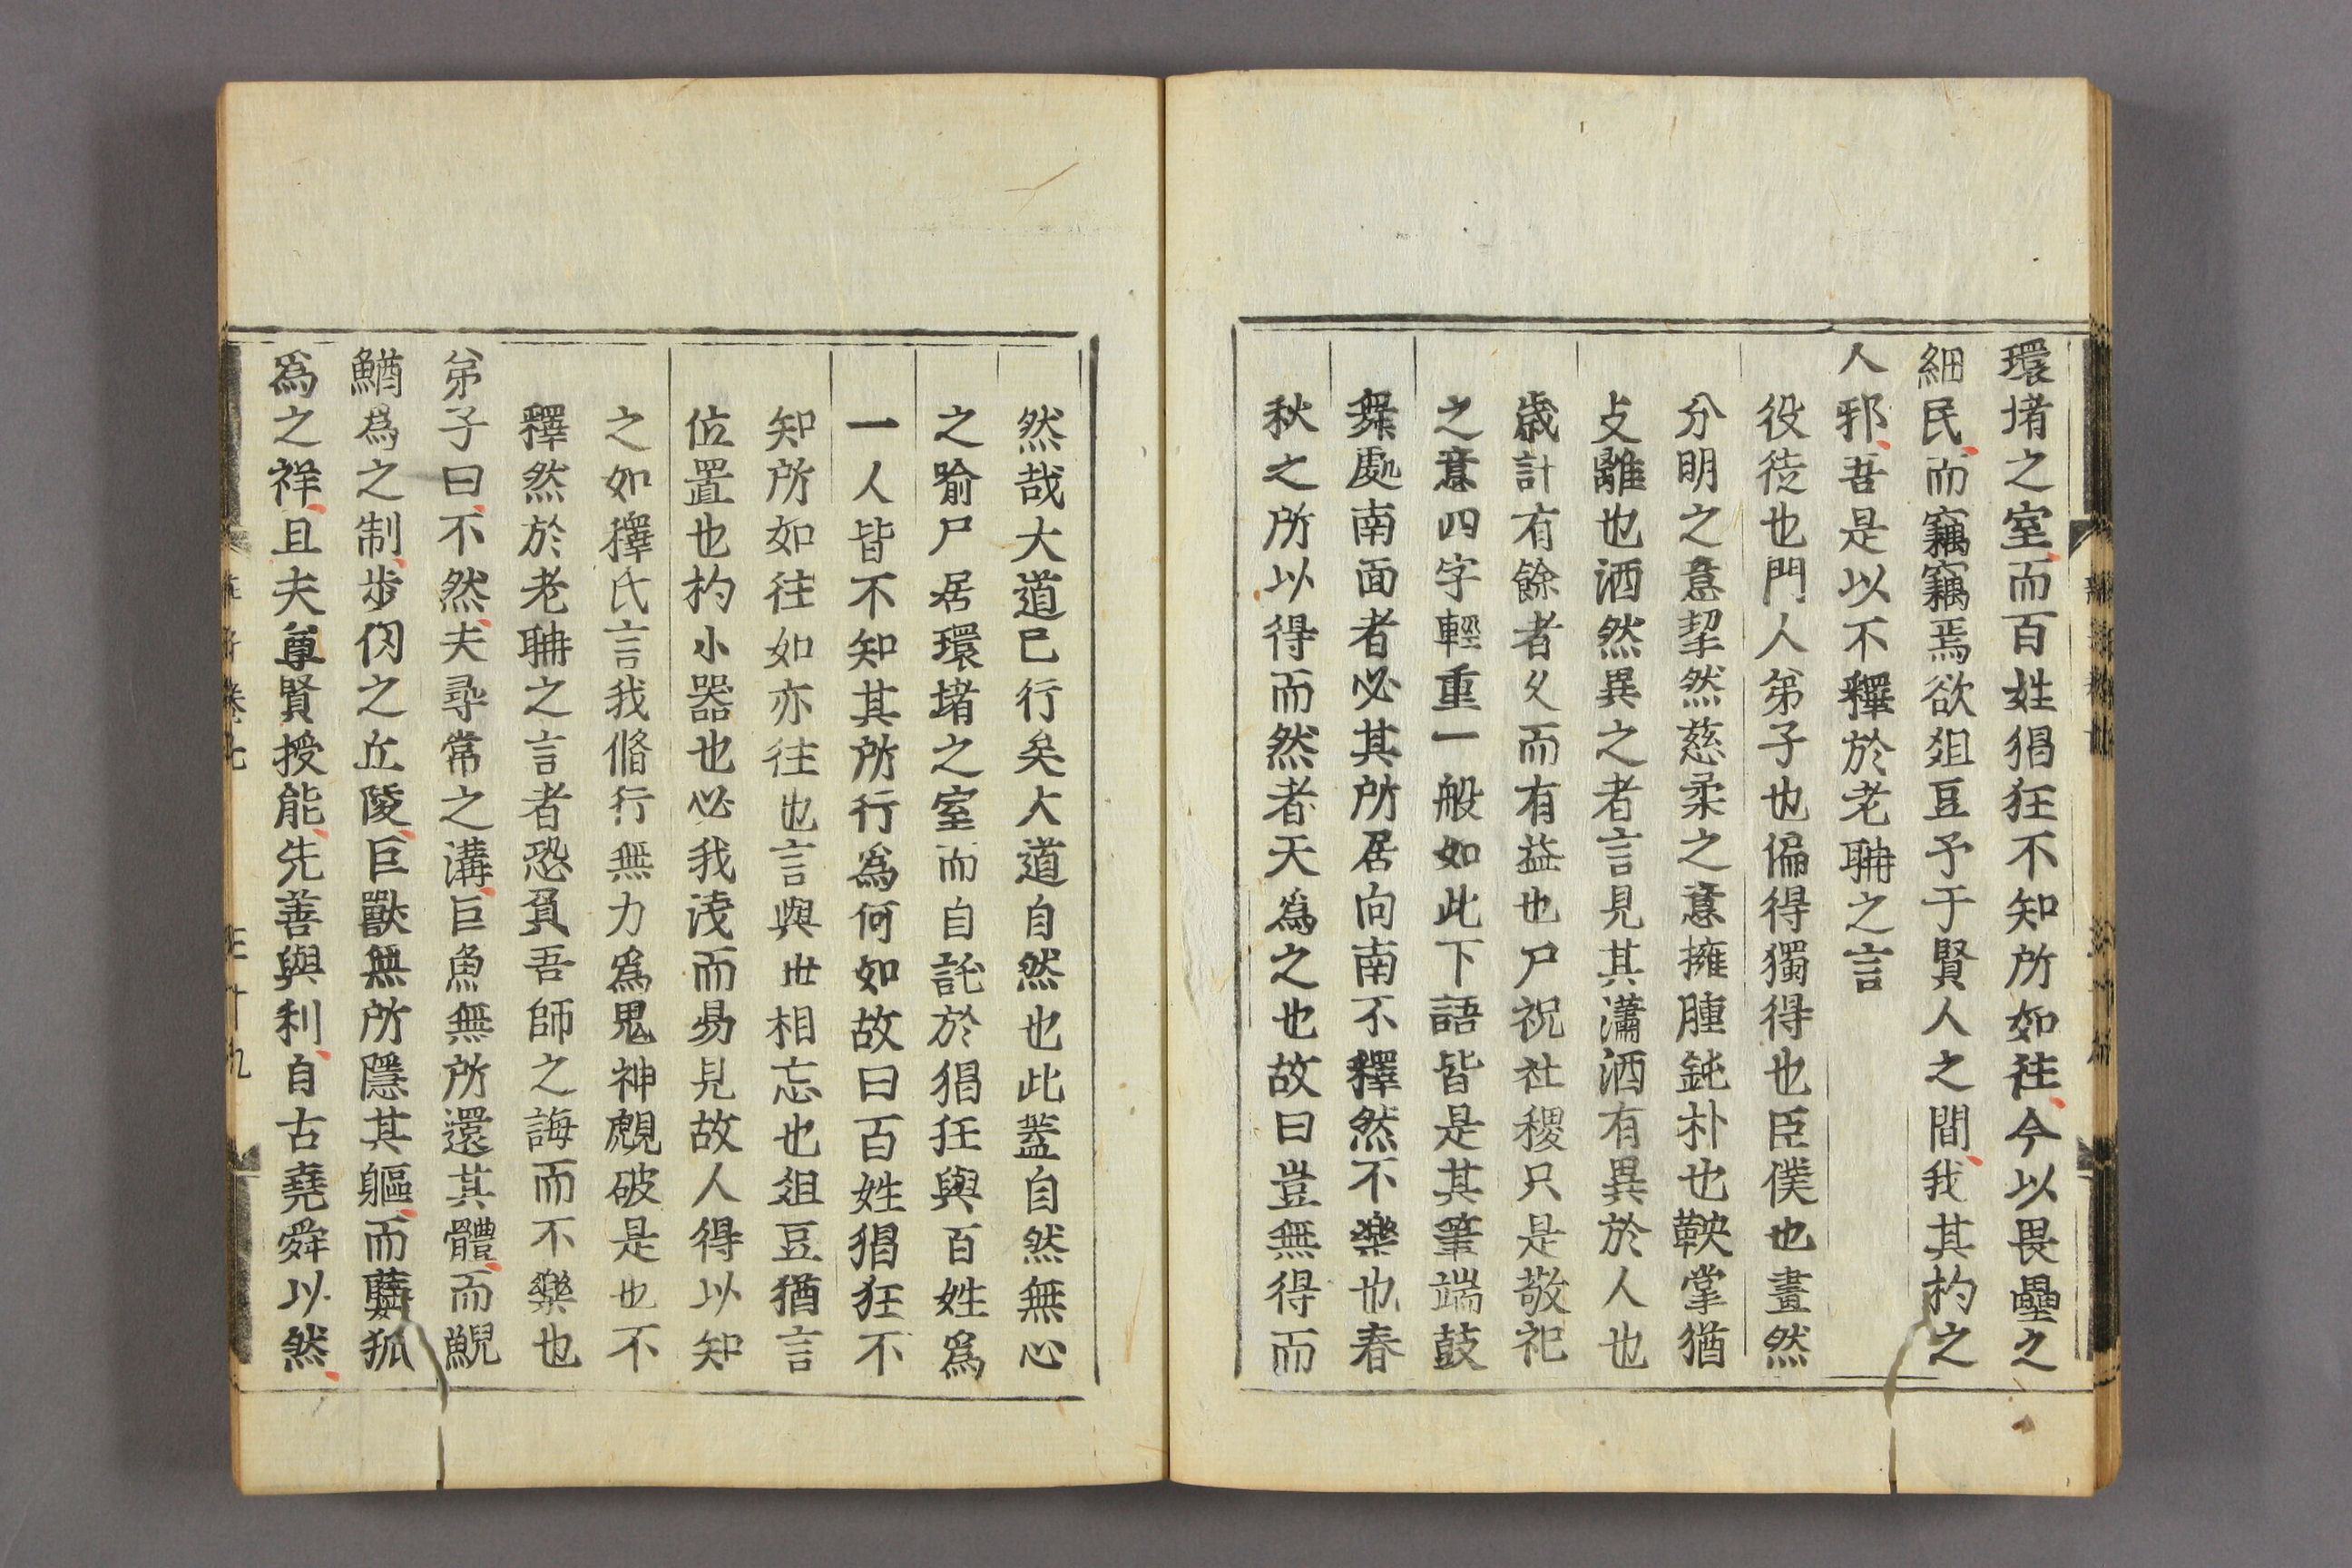 環堵之室而百姓猖狂不知所如往今以畏壘之
細民而竊竊焉欲俎豆予于賢人之間我其杓之
人邪吾是以不釋於老聃之言
役徒也門人弟子也偏得獨得也臣僕也畫然
分明之意挈然慈柔之意擁腫鈍朴也鞅掌猶
支離也洒然異之者言見其瀟洒有異於人也
歲計有餘者久而有益也尸祝社稷只是敬祀
之意四字輕重一般如此下語皆是其筆端鼓
舞處南面者必其所居向南不釋然不樂也春
秋之所以得而然者天為之也故曰豈無得而
然哉大道已行矣大道自然也此蓋自然無心
之喻尸居環堵之室而自託於猖狂與百姓爲
一人皆不知其所行爲何如故曰百姓猖狂不
知所如往如亦往也言與世相忘也俎豆猶言
位置也杓小器也必我淺而易見故人得以知
之如釋氏言我脩行無力爲鬼神覷破是也不
釋然於老聃之言者恐負吾師之誨而不樂也
弟子曰不然夫尋常之溝巨魚無所還其體而鯢
鰌爲之制步仞之丘陵巨獸無所隱其軀而㜸狐
爲之祥且夫尊賢授能先善與利自古堯舜以然
莊子卷七 三十九